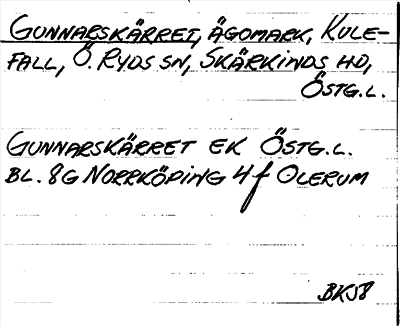 GUNNARSKÄRRET, ÄGOMARK, KULE-
FALL, Ö. RYDS SN, SKÄRKINDS HD,
ÖSTG.L.
GUNNARSKÄRRET EK ÖSTG.L.
BL. 8G NORRKÖPING 4f OLERUM
BK58